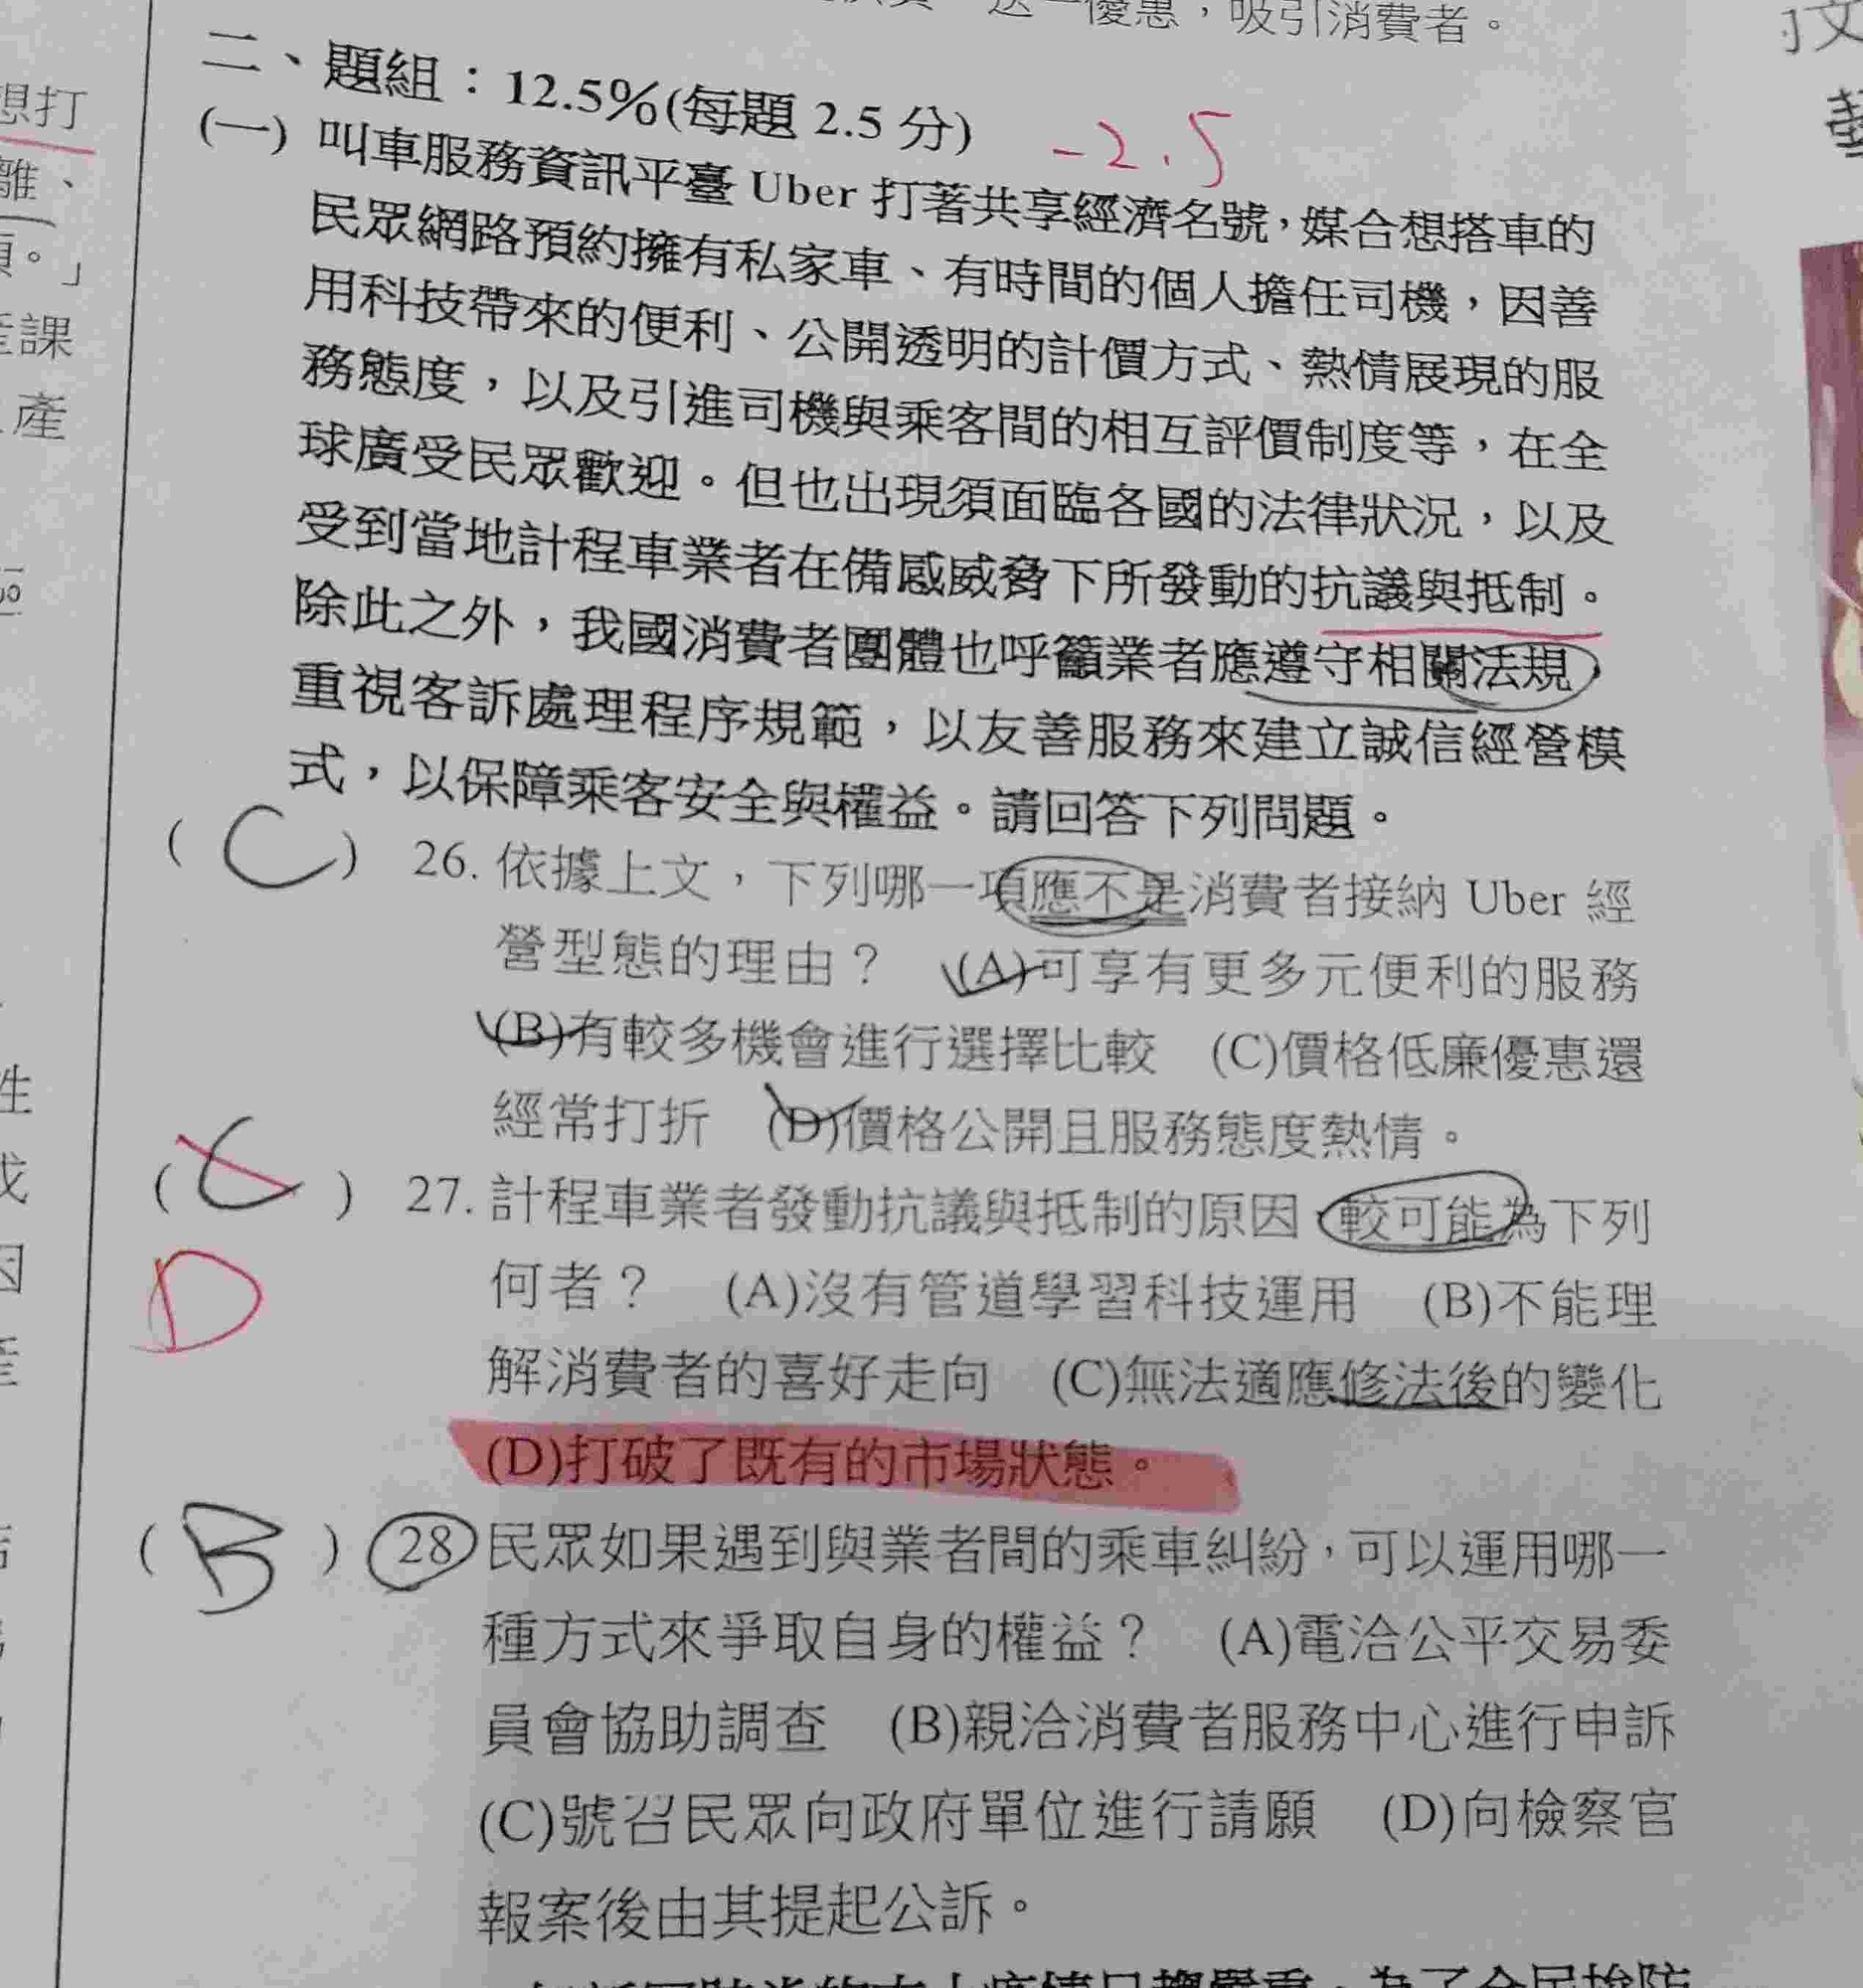 送一優惠，吸引消費者。
二、題組：12.5%(每題 2.5 分)
-2.5
(一) 叫車服務資訊平臺 Uber 打著共享經濟名號，媒合想搭車的
民眾網路預約擁有私家車、有時間的個人擔任司機，因善
用科技帶來的便利、公開透明的計價方式、熱情展現的服
務態度，以及引進司機與乘客間的相互評價制度等，在全
球廣受民眾歡迎。但也出現須面臨各國的法律狀況，以及
受到當地計程車業者在備感威脅下所發動的抗議與抵制。
除此之外，我國消費者團體也呼籲業者應遵守相關法規，
重視客訴處理程序規範，以友善服務來建立誠信經營模
式，以保障乘客安全與權益。請回答下列問題。
( C ) 26. 依據上文，下列哪一項應不是消費者接納 Uber 經
營型態的理由？ (A)可享有更多元便利的服務
(B)有較多機會進行選擇比較 (C)價格低廉優惠還
經常打折 (D)價格公開且服務態度熱情。
( C ) 27. 計程車業者發動抗議與抵制的原因，較可能為下列
D
何者？ (A)沒有管道學習科技運用 (B)不能理
解消費者的喜好走向 (C)無法適應修法後的變化
(D)打破了既有的市場狀態。
( B ) 28 民眾如果遇到與業者間的乘車糾紛，可以運用哪一
種方式來爭取自身的權益？ (A)電洽公平交易委
員會協助調查 (B)親洽消費者服務中心進行申訴
(C)號召民眾向政府單位進行請願 (D)向檢察官
報案後由其提起公訴。
想打
離、
。」
課
產
性
文